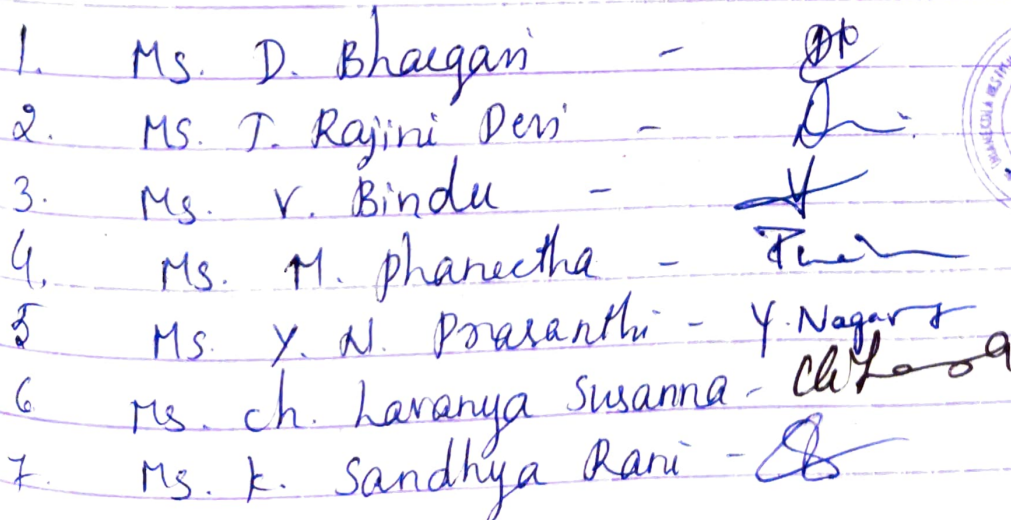 1. Ms. D. Bhargavi -
2. Ms. T. Rajini Devi -
3. Ms. V. Bindu -
4. Ms. M. Phaneetha -
5 Ms. Y. N. Prasanthi - Y. Nagar
6 Ms. Ch. Lavanya Susanna -
7. Ms. K. Sandhya Rani -